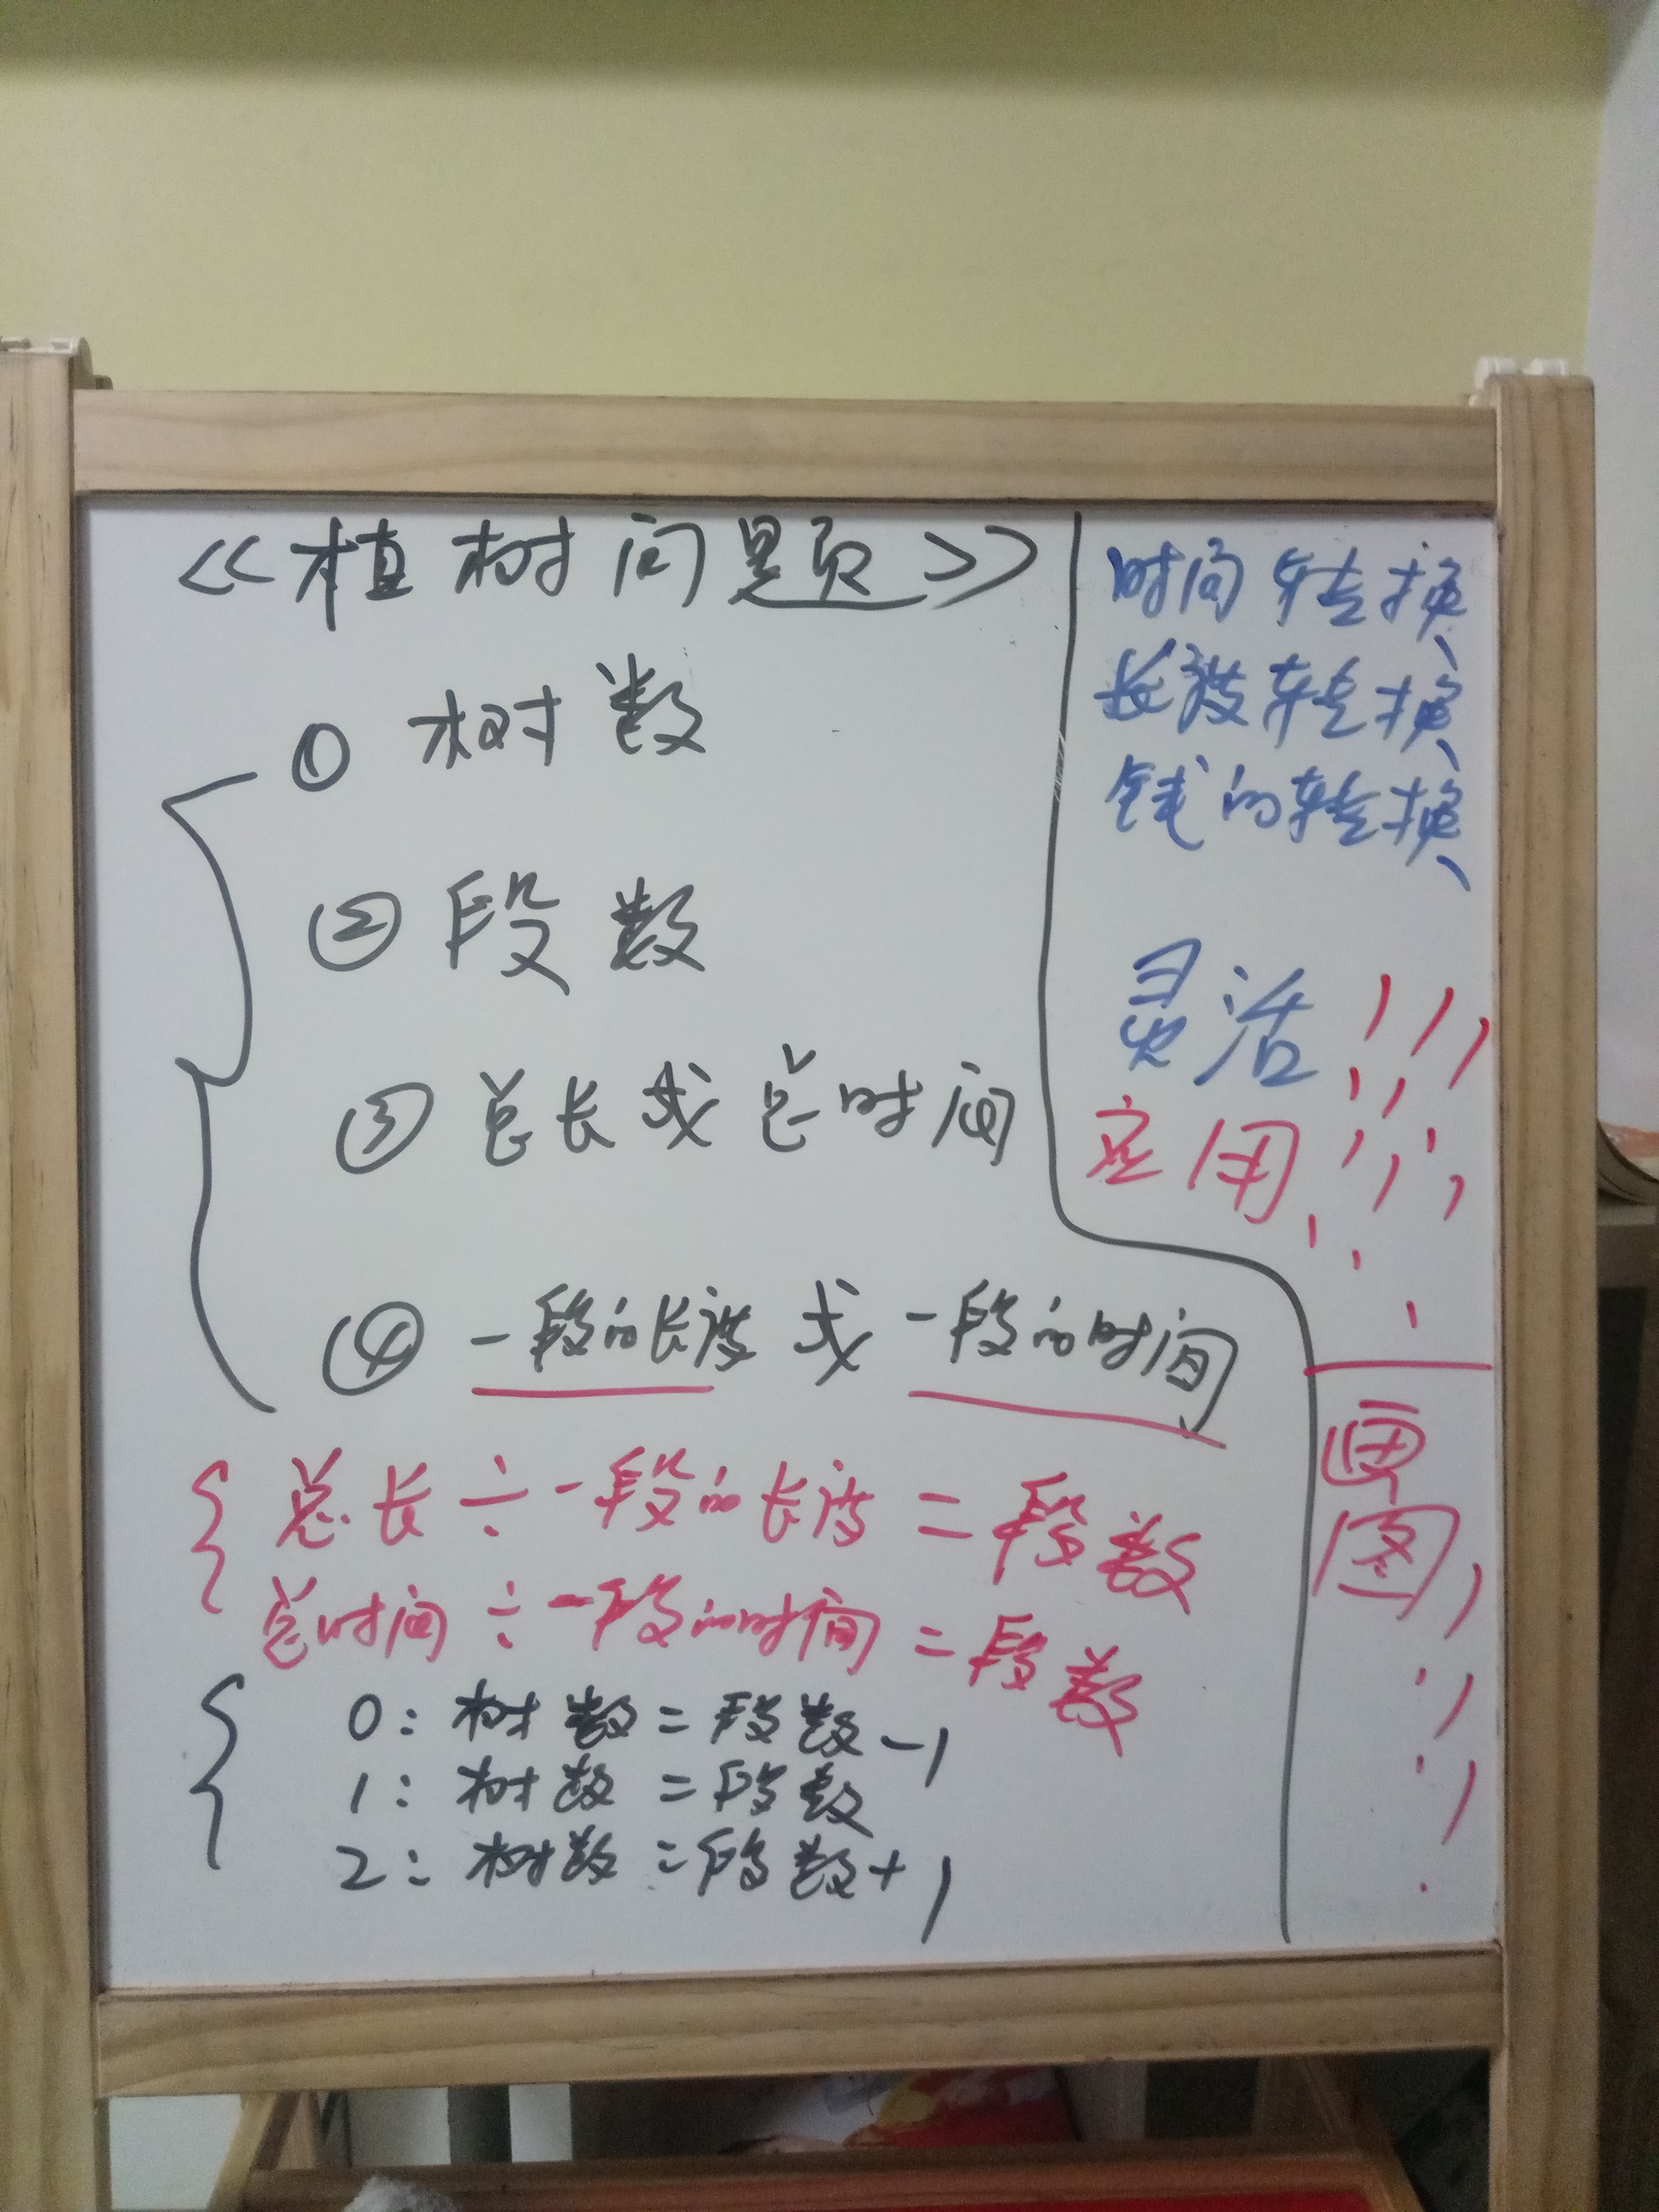 《植树问题》
① 树数
② 段数
③ 总长或总时间
④ 一段的长度或一段的时间
总长÷一段的长度=段数
总时间÷一段的时间=段数
0:树数=段数-1
1:树数=段数
2:树数=段数+1
时间转换、
长度转换、
钱的转换、
灵活
应用
画
图